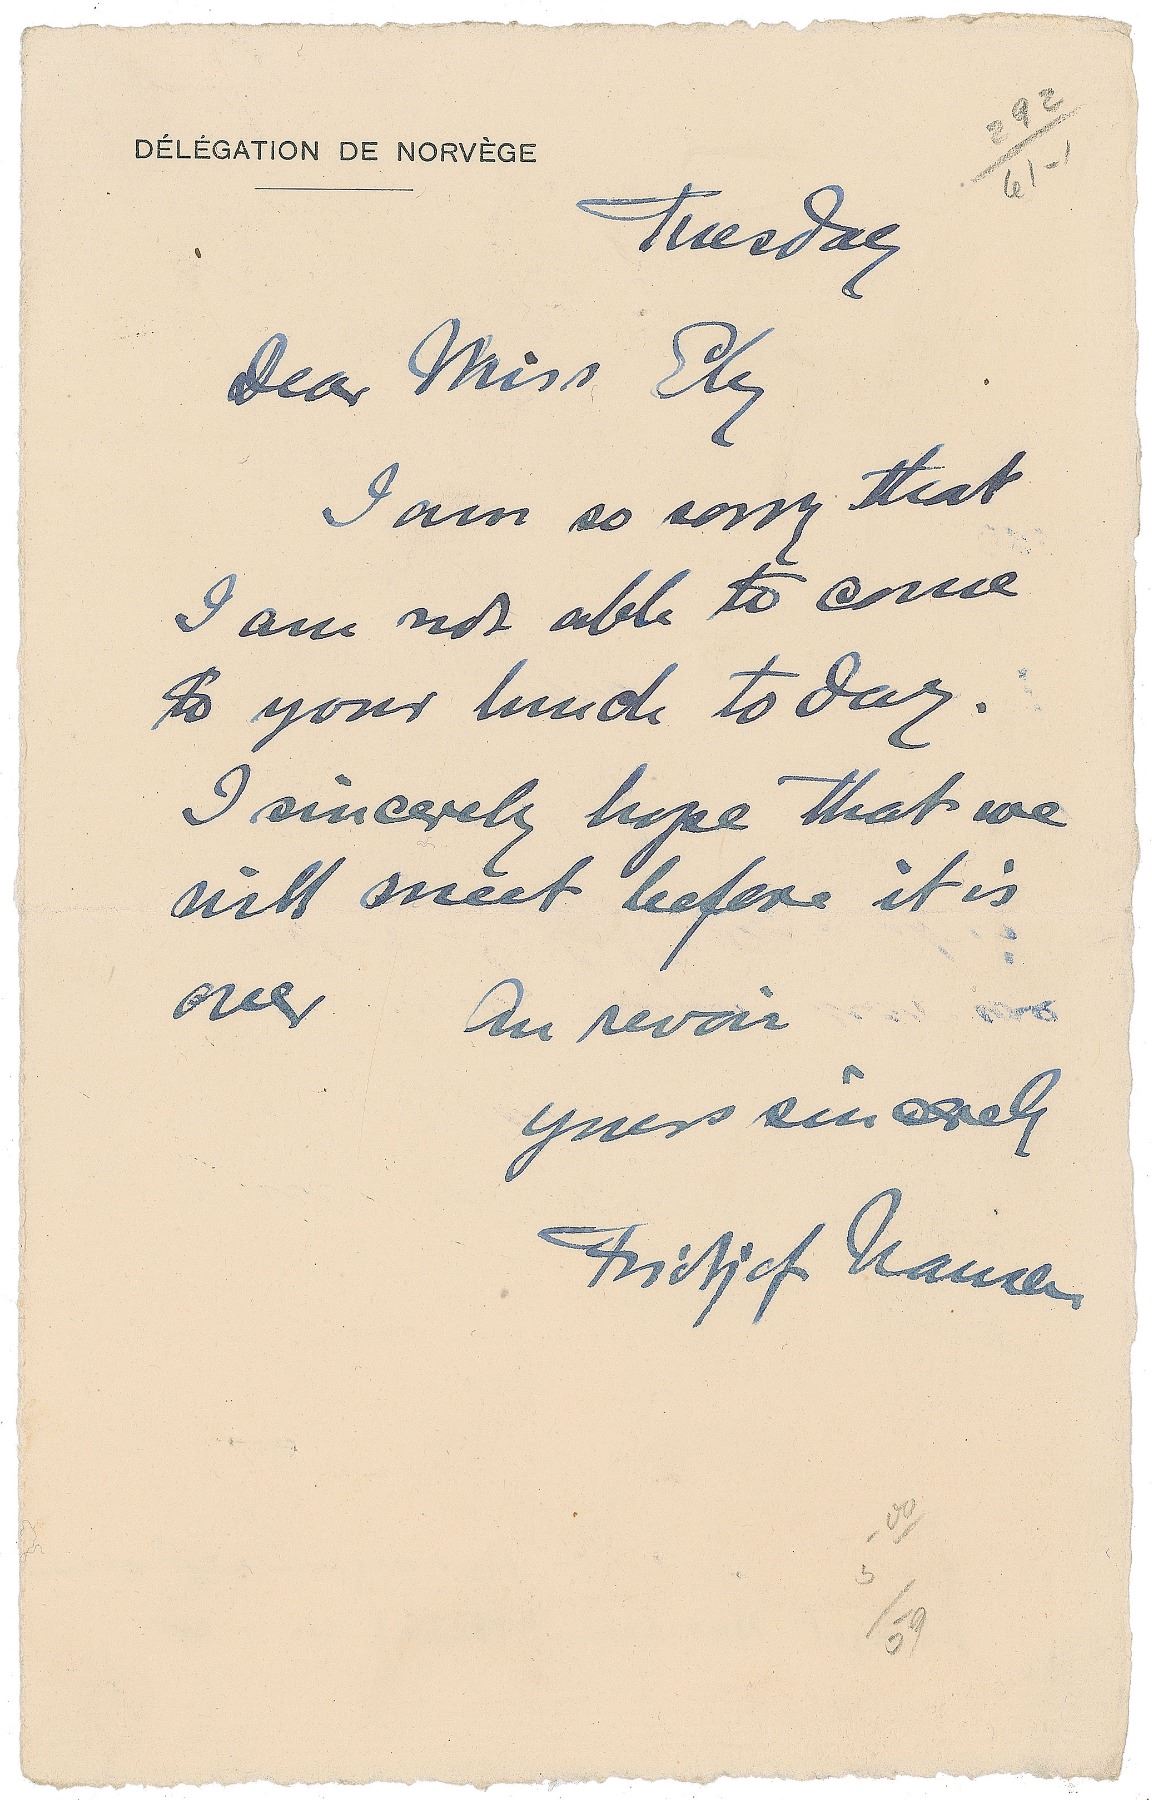 DÉLÉGATION DE NORVÈGE
292
61-1
Tuesday
Dear Miss Ely
I am so sorry that
I am not able to come
to your lunch to day.
I sincerely hope that we
will meet before it is
over Au revoir
yours sincerely
Fridtjof Nansen